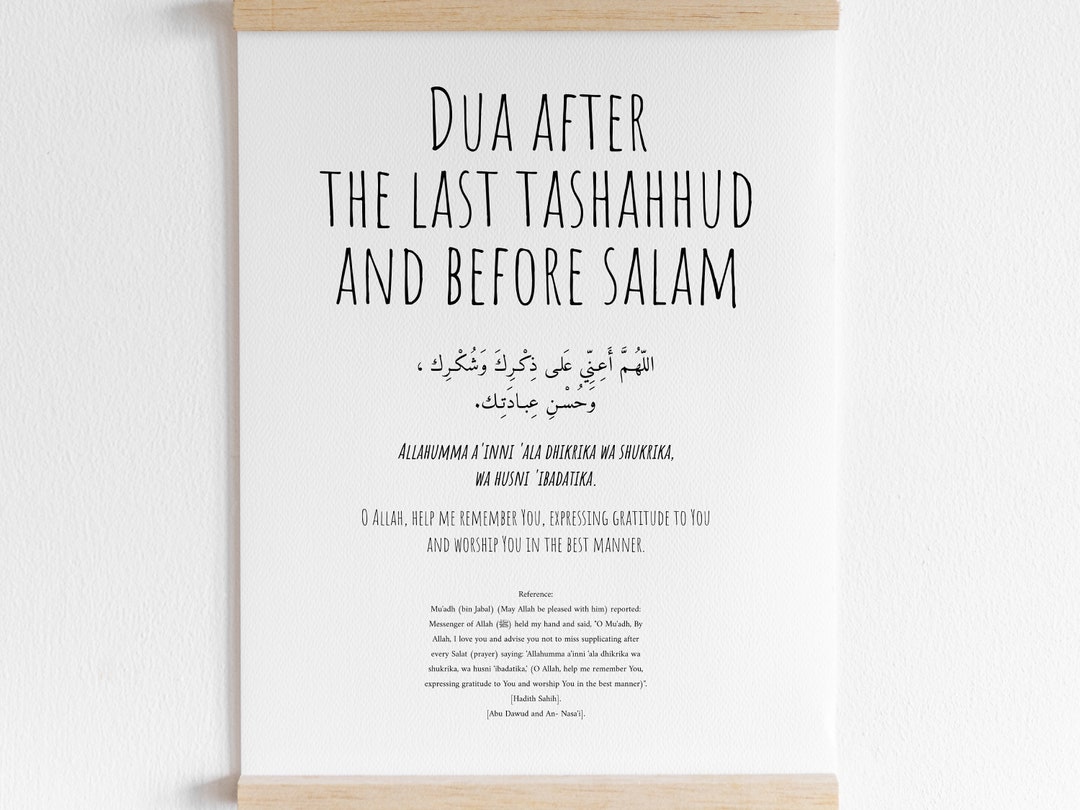 DUA AFTER
THE LAST TASHAHHUD
AND BEFORE SALAM
اللّهُـمَّ أَعِـنِّي عَلى ذِكْـرِكَ وَشُكْـرِك ،
وَحُسْـنِ عِبـادَتِـك.
ALLAHUMMA A'INNI 'ALA DHIKRIKA WA SHUKRIKA,
WA HUSNI 'IBADATIKA.
O ALLAH, HELP ME REMEMBER YOU, EXPRESSING GRATITUDE TO YOU
AND WORSHIP YOU IN THE BEST MANNER.
Reference:
Mu'adh (bin Jabal) (May Allah be pleased with him) reported:
Messenger of Allah (ﷺ) held my hand and said, "O Mu'adh, By
Allah, I love you and advise you not to miss supplicating after
every Salat (prayer) saying: 'Allahumma a'inni 'ala dhikrika wa
shukrika, wa husni 'ibadatika,' (O Allah, help me remember You,
expressing gratitude to You and worship You in the best manner)".
[Hadith Sahih].
[Abu Dawud and An- Nasa'i].